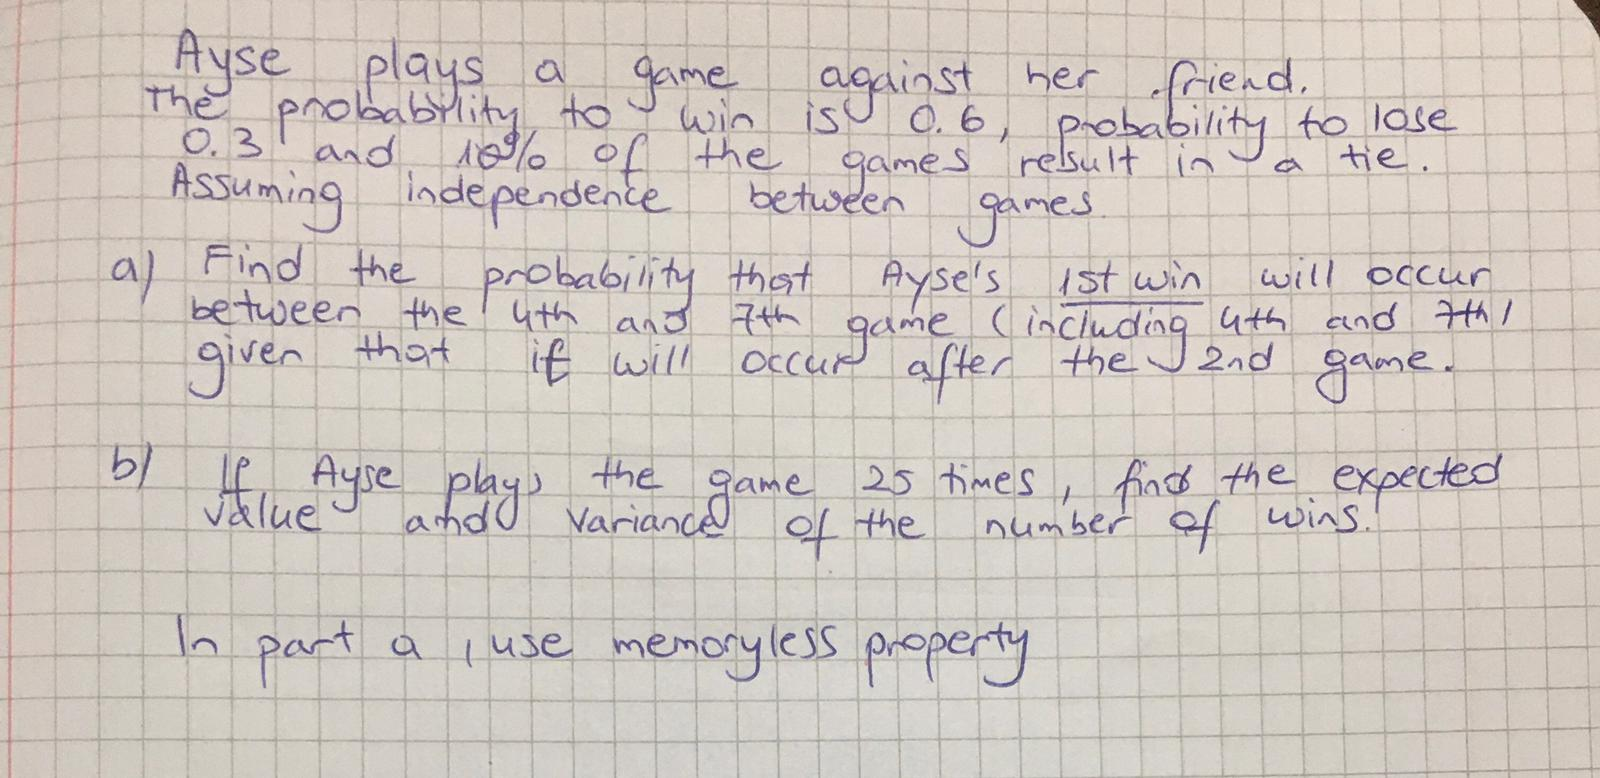 Ayse plays a game against her friend.
The probability to win is 0.6, probability to lose
0.3 and 10% of the games result in a tie.
Assuming independence between games.
a) Find the probability that Ayse's 1st win will occur
between the 4th and 7th game (including 4th and 7th)
given that it will occur after the 2nd game.
b) If Ayse plays the game 25 times, find the expected
value and variance of the number of wins.
In part a, use memoryless property